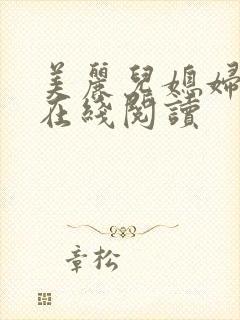 美麗兒媳婦
在綫閱讀
章松